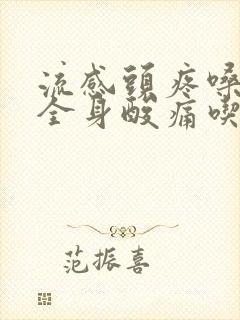 流感頭疼嗓
全身酸痛喫
范振喜